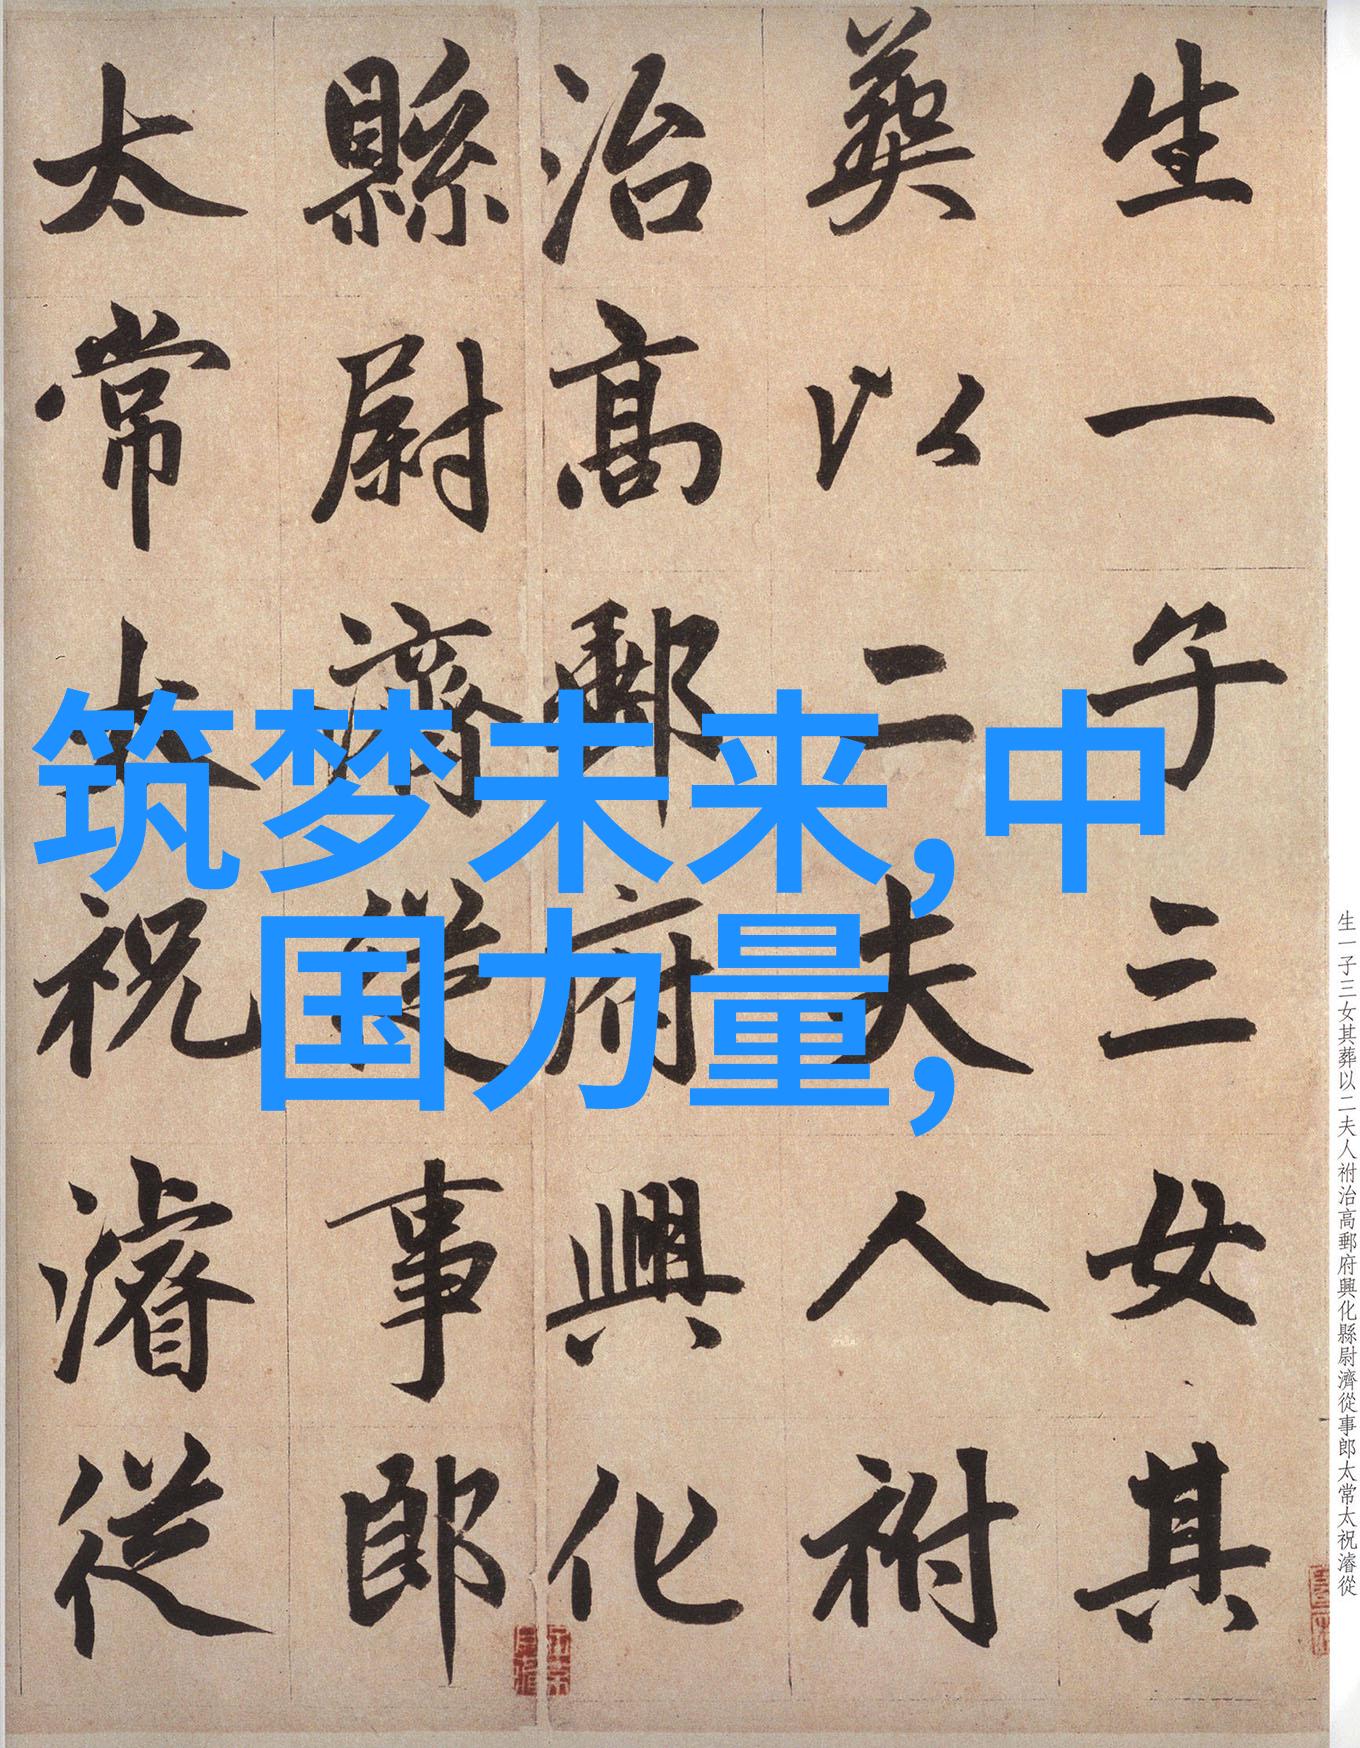 筑梦未来,中
国力量,
生一子三女其
葬以二夫人祔
治高郵府興化
縣尉濟從事郎
太常太祝濬從
生一子三女其葬以二夫人祔治高郵府興化縣尉濟從事郎太常太祝濬從